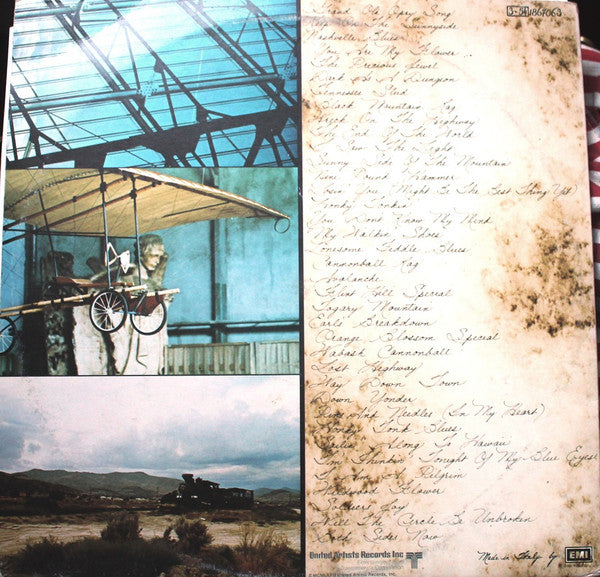 Grand Ole Opry Song
Keep On The Sunnyside
Nashville Blues
You Are My Flower
The Precious Jewel
Dark As A Dungeon
Tennessee Stud
Black Mountain Rag
Wreck On The Highway
The End Of The World
I Saw The Light
Sunny Side Of The Mountain
Nine Pound Hammer
Losin' You (Might Be The Best Thing Yet)
Honky Tonkin'
You Don't Know My Mind
My Walkin' Shoes
Lonesome Fiddle Blues
Cannonball Rag
Avalanche
Flint Hill Special
Togary Mountain
Earl's Breakdown
Orange Blossom Special
Wabash Cannonball
Lost Highway
Way Down Town
Down Yonder
Pins And Needles (In My Heart)
Honky Tonk Blues
Sailin' Along To Hawaii
I'm Thinkin' Tonight Of My Blue Eyes
I Am A Pilgrim
Wildwood Flower
Soldier's Joy
Will The Circle Be Unbroken
Both Sides Now
United Artists Records Inc
Made in Italy by EMI